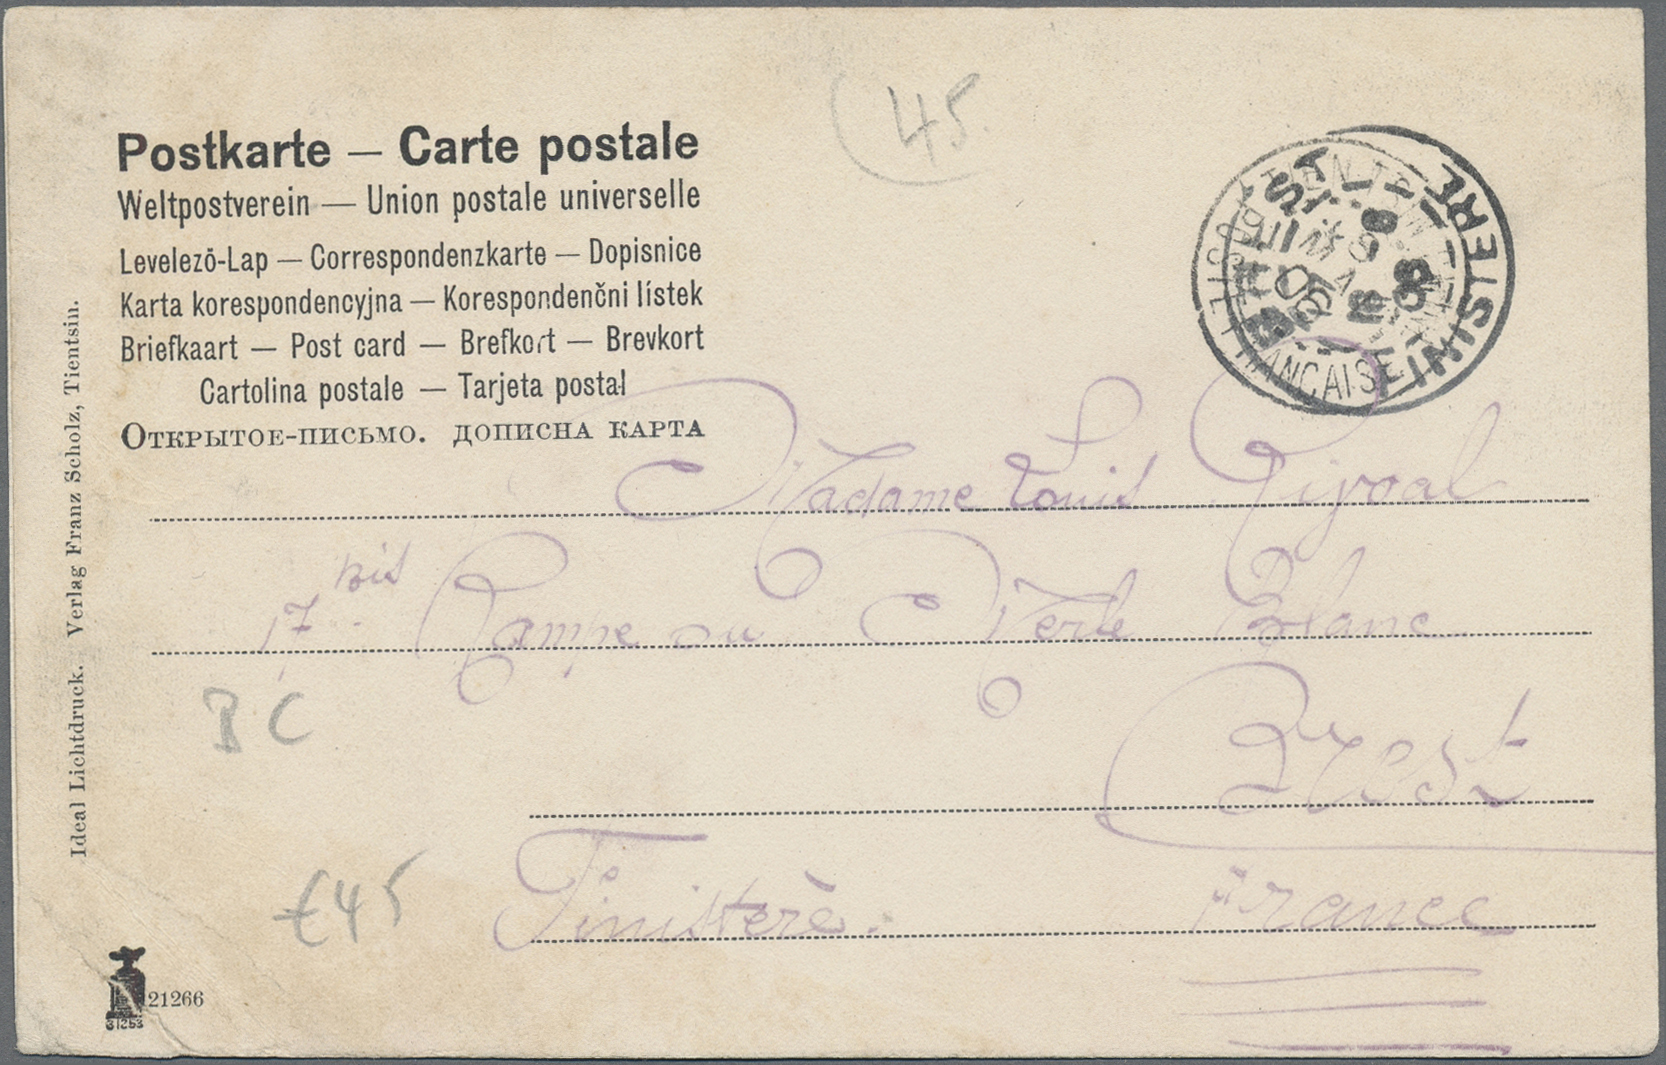 45.
Postkarte — Carte postale
Weltpostverein — Union postale universelle
Levelező-Lap — Correspondenzkarte — Dopisnice
Karta korespondencyjna — Korespondenčni lístek
Briefkaart — Post card — Brefkort — Brevkort
Cartolina postale — Tarjeta postal
Открытое-письмо. дописна карта
BREST
FINISTERE
Ideal Lichtdruck. Verlag Franz Scholz, Tientsin.
Madame Louis Rivoal
17 bis Rampe du Merle Blanc
Brest
Finistère. France
B C
€45
21266